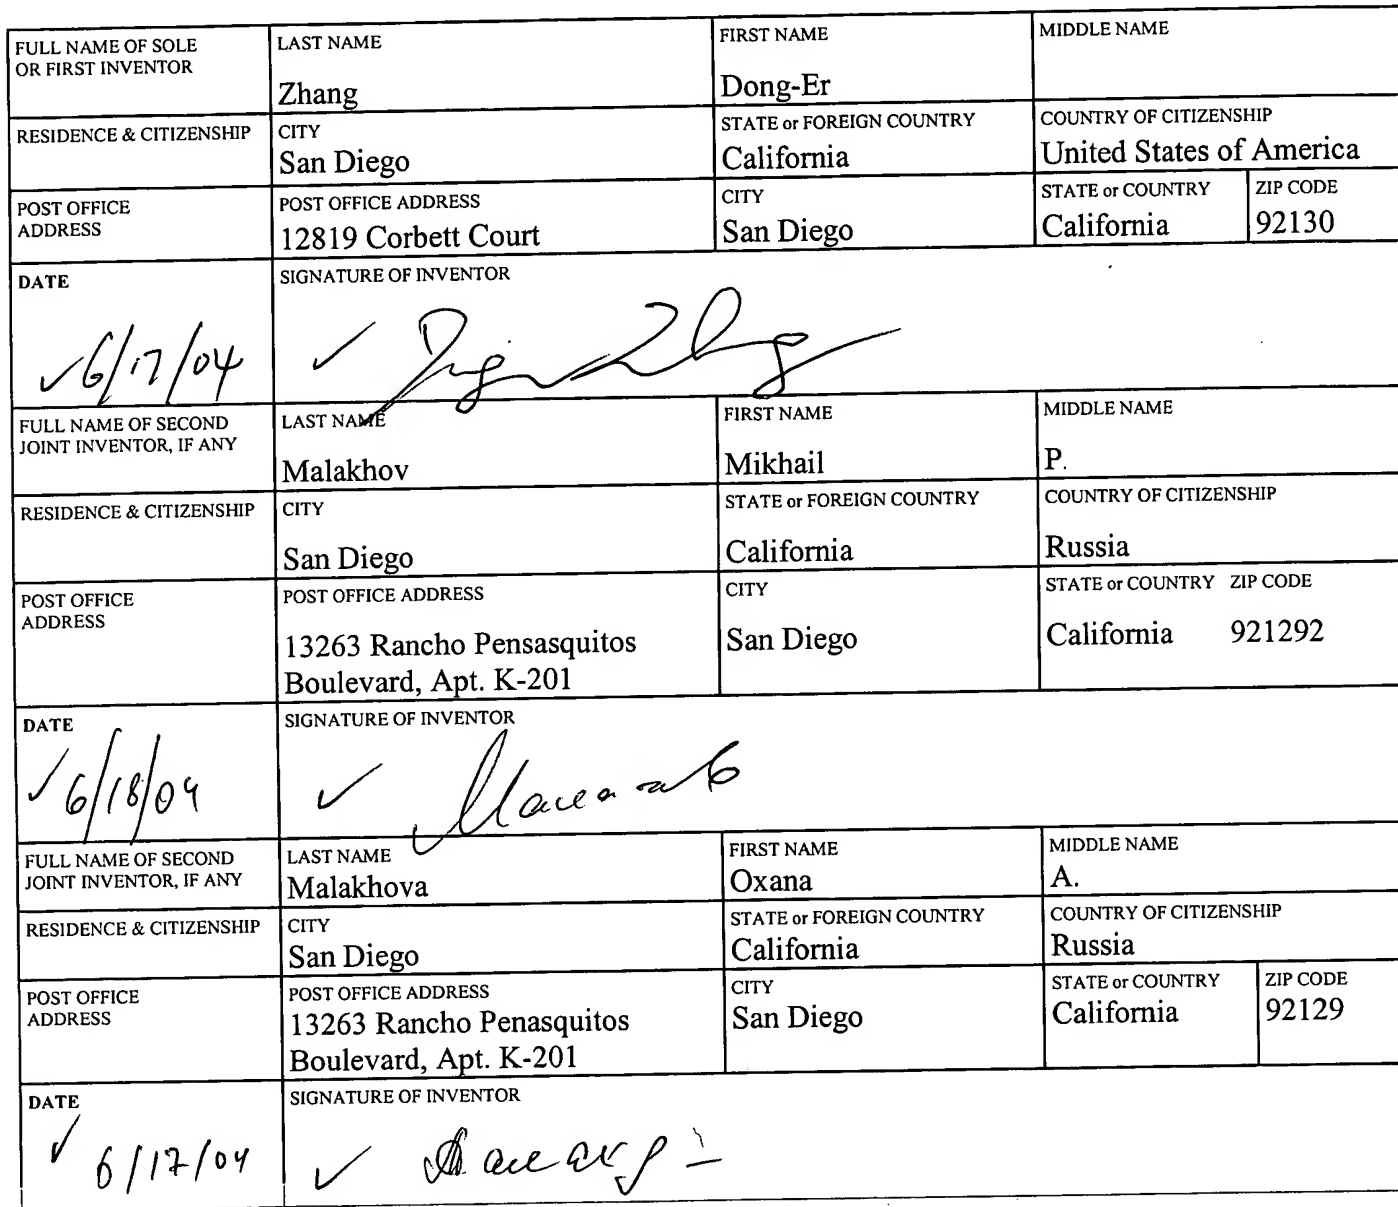 FULL NAME OF SOLE
OR FIRST INVENTOR
LAST NAME
Zhang
FIRST NAME
Dong-Er
MIDDLE NAME
RESIDENCE & CITIZENSHIP
CITY
San Diego
STATE or FOREIGN COUNTRY
California
COUNTRY OF CITIZENSHIP
United States of America
POST OFFICE
ADDRESS
POST OFFICE ADDRESS
12819 Corbett Court
CITY
San Diego
STATE or COUNTRY
California
ZIP CODE
92130
DATE
✓6/17/04
SIGNATURE OF INVENTOR
✓
FULL NAME OF SECOND
JOINT INVENTOR, IF ANY
LAST NAME
Malakhov
FIRST NAME
Mikhail
MIDDLE NAME
P.
RESIDENCE & CITIZENSHIP
CITY
San Diego
STATE or FOREIGN COUNTRY
California
COUNTRY OF CITIZENSHIP
Russia
POST OFFICE
ADDRESS
POST OFFICE ADDRESS
13263 Rancho Pensasquitos
Boulevard, Apt. K-201
CITY
San Diego
STATE or COUNTRY ZIP CODE
California 921292
DATE
✓6/18/04
SIGNATURE OF INVENTOR
✓
FULL NAME OF SECOND
JOINT INVENTOR, IF ANY
LAST NAME
Malakhova
FIRST NAME
Oxana
MIDDLE NAME
A.
RESIDENCE & CITIZENSHIP
CITY
San Diego
STATE or FOREIGN COUNTRY
California
COUNTRY OF CITIZENSHIP
Russia
POST OFFICE
ADDRESS
POST OFFICE ADDRESS
13263 Rancho Penasquitos
Boulevard, Apt. K-201
CITY
San Diego
STATE or COUNTRY
California
ZIP CODE
92129
DATE
✓ 6/17/04
SIGNATURE OF INVENTOR
✓